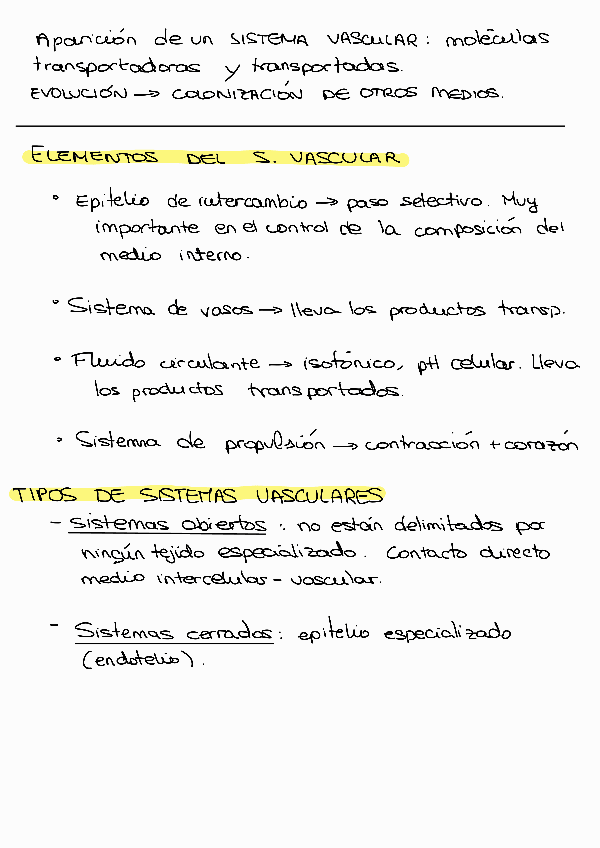 Aparición de un SISTEMA VASCULAR: moléculas
transportadoras y transportadas.
EVOLUCIÓN → COLONIZACIÓN DE OTROS MEDIOS.
ELEMENTOS DEL S. VASCULAR
° Epitelio de intercambio → paso selectivo. Muy
importante en el control de la composición del
medio interno.
° Sistema de vasos → lleva los productos transp.
° Fluido circulante → isotónico, pH celular. Lleva
los productos transportados.
° Sistema de propulsión → contracción + corazón
TIPOS DE SISTEMAS VASCULARES
- Sistemas abiertos: no están delimitados por
ningún tejido especializado. Contacto directo
medio intercelular - vascular.
- Sistemas cerrados: epitelio especializado
(endotelio).